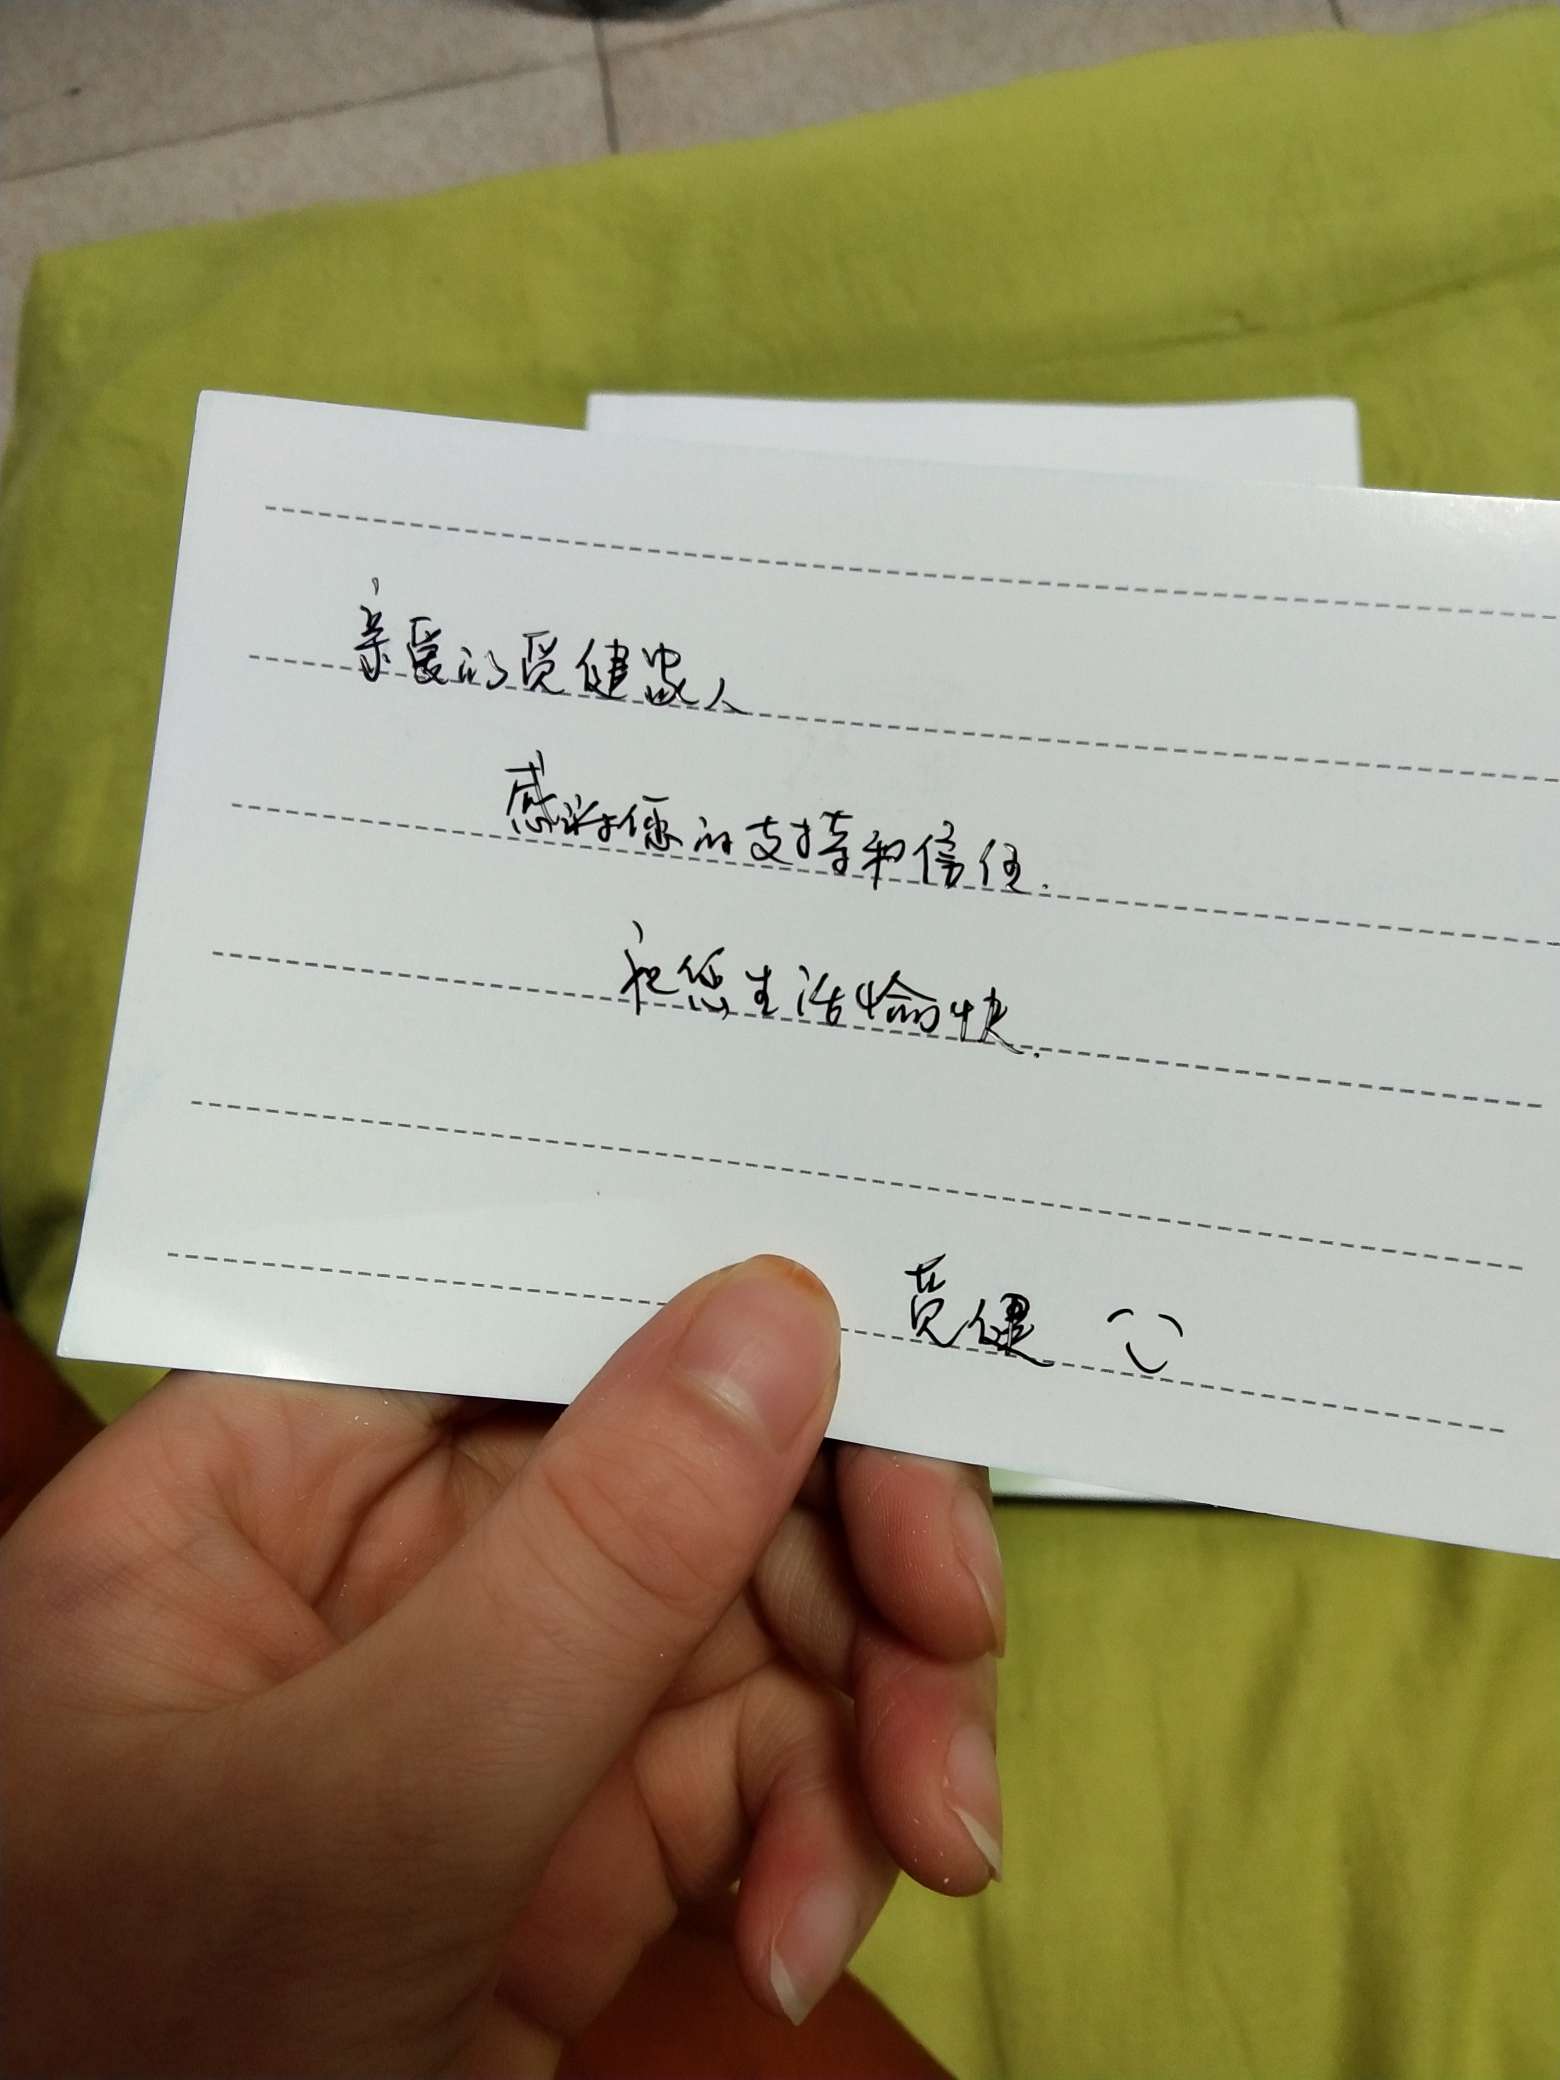 亲爱的觅健家人
感谢您的支持和信任.
祝您生活愉快.
觅健